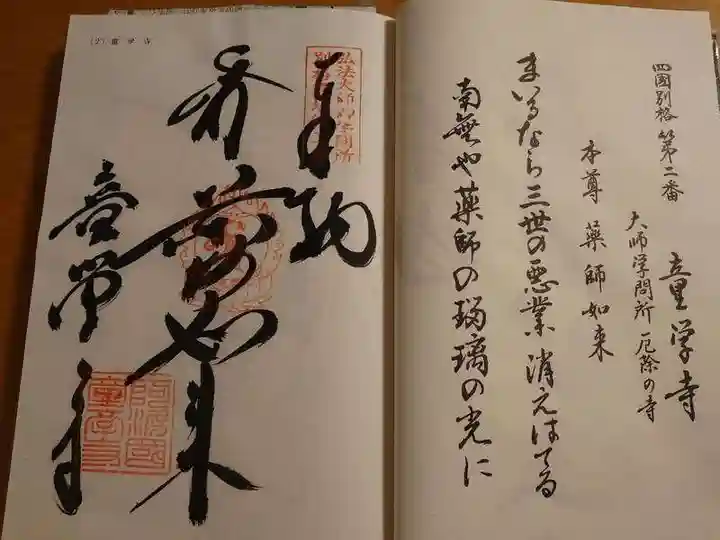 四國別格 第二番
童学寺
大師学問所 厄除の寺
本尊 薬師如来
まいるなら三世の悪業消えはてる
南無や薬師の瑠璃の光に
(2) 童学寺
弘法大師御学問所
奉納
如来
童学寺
阿波國
童学寺